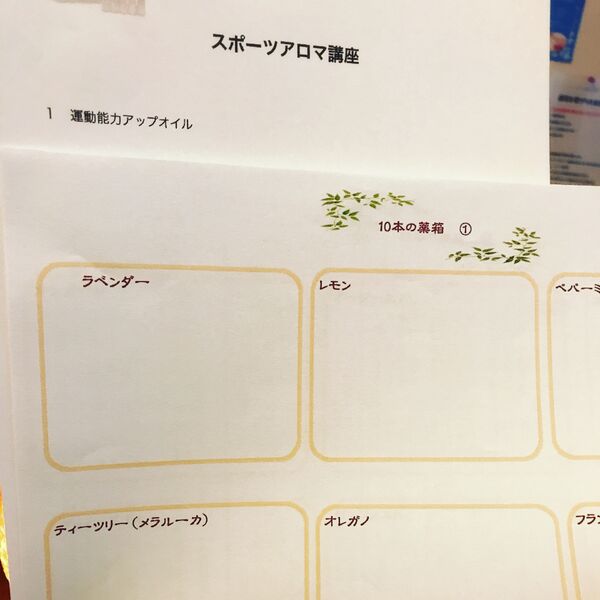 スポーツアロマ講座
1 運動能力アップオイル
10本の薬箱 ①
ラベンダー
レモン
ペパーミ
ティーツリー(メラルーカ)
オレガノ
フラン